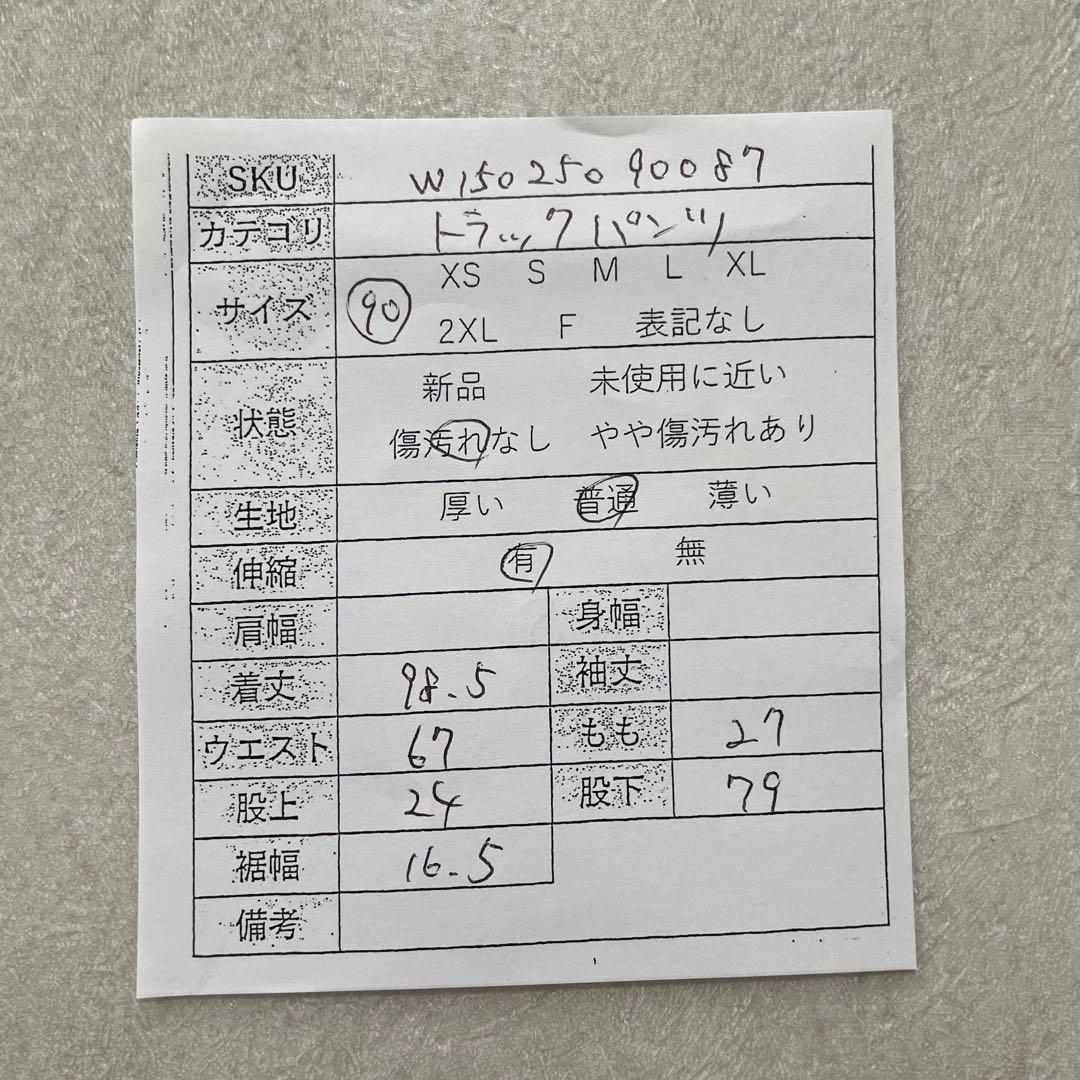 SKU W15025090087
カテゴリ トラックパンツ
XS S M L XL
サイズ 90
2XL F 表記なし
新品 未使用に近い
状態
傷汚れなし やや傷汚れあり
生地 厚い 普通 薄い
伸縮 有 無
肩幅 身幅
着丈 98.5 袖丈
ウエスト 67 もも 27
股上 24 股下 79
裾幅 16.5
備考